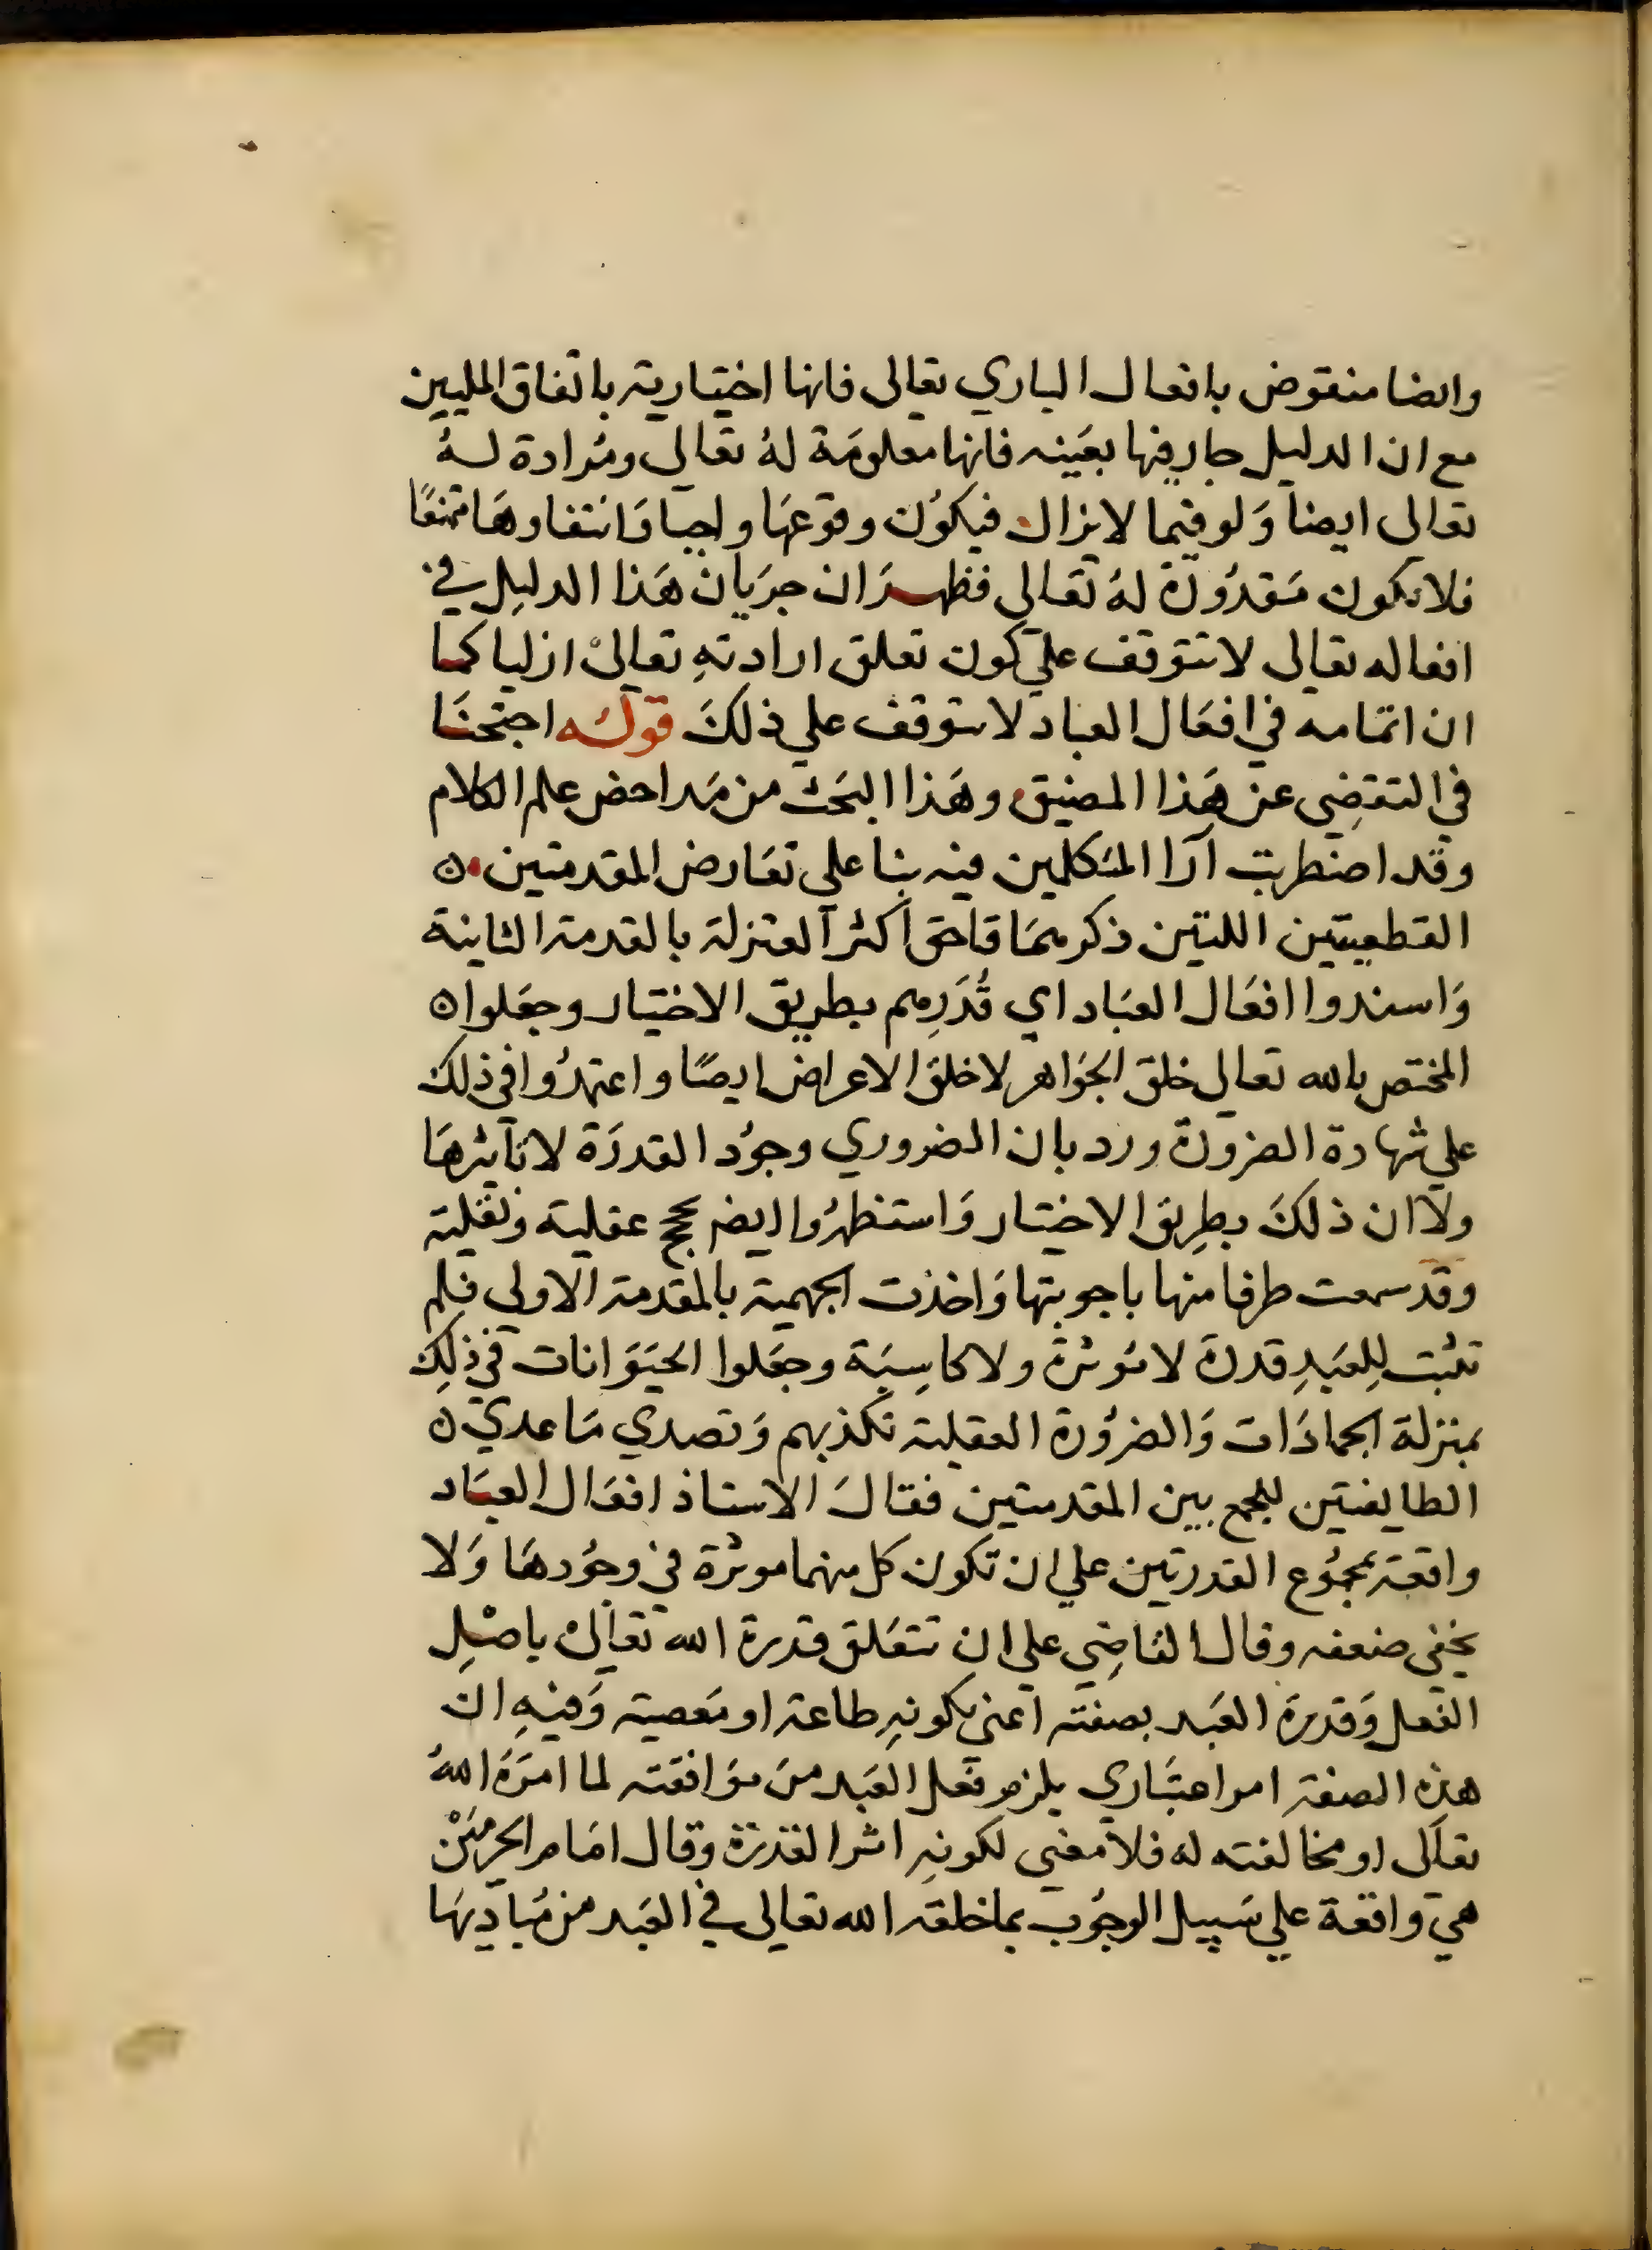 وايضا منقوض بافعال الباري تعالى فانها اختيارية باتفاق المليين
مع ان الدليل جار فيها بعَينه فانها معلومَة لهُ تعالي ومُرادة لـهُ
تعالى ايضا وَلو فيما لا يزال فيكوُن وقوعهَا واجبا وَانتفاوهَا ممتنعًا
فلا تكون مَقدُورَة لهُ تعَالي فظهـرَ ان جرَيان هَذا الدليل في
افعاله تعالى لا تتوقف علي كون تعلق ارادتهِ تعالىْ ازليا كما
ان اتمامه في افعَال العباد لا يتوقف علي ذلكَ قولـَه احتجنَا
في التفصِي عن هَذا المضيق وهَذا البحَث من مَداحض علم الكلام
وقد اضطربت آرا المتكلمين فيه بنا علي تعَارض المقدمتين
القطعيتين اللتين ذكرهمَا فاحق اكثر المعتزلة بالمقدمة الثانية
وَاسندوا افعَال العبَاد اي قُدَرِهم بطريق الاختيار وجعَلوا
المختص بالله تعالي خلق الجوَاهر لا خلق الاعراض ايضًا واعتمدُوا في ذلك
علي شهادة الضرورة ورد بان الضروري وجوُد القدرَة لا تاثيرهَا
ولا ان ذلكَ بطِريق الاختيار وَاستظهرُوا ايض بحجج عقلية وَنقلية
وقد سمعت طرفا منها باجوبتها وَاخذت الجهمية بالمقدمة الاولي فلم
تثبت لِلعَبدِ قدرة لا مُوثرة ولا كاسِبَة وجعَلوا الحيَوَانات في ذلِك
بمنزلة الجمادَات وَالضرُورة العقلية تكذبهم وَتصدي مَا عدي
الطايفتين للجمع بين المقدمتين فقالَ الاستاذ افعَال العبَاد
واقعة بمجمُوع القدرتين علي ان تكون كل منهما موثرة في وجوُدهَا وَلا
يخفي ضعفه وقال القاضِي علي ان تتعَلق قدرة الله تعَالىْ باصْلِ
الفعل وَقدرَة العَبد بصفته اعني بكونهِ طاعة او مَعصية وَفيهِ ان
هذه الصفة امر اعتبَاري يلزم فعل العَبد منَ موَافقته لما امرَهُ اللهُ
تعالى او مخالفته له فلا معني لكونهِ اثر القدرَة وَقال امَام الحرميَنْ
هي واقعَة علي سَبيل الوجوُب بما خلقه الله تعالى في العَبد من مُبَاديهَا